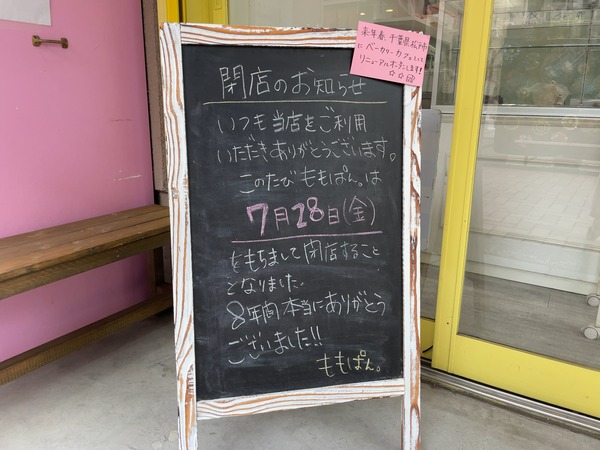 来年春、千葉県松戸市
に ベーカリーカフェとして
リニューアルオープンします!
☆☆
閉店のお知らせ
いつも当店をご利用
いただきありがとうございます。
このたび ももぱん。は
7月28日(金)
をもちまして閉店すること
となりました。
8年間本当にありがとう
ございました!!
ももぱん。